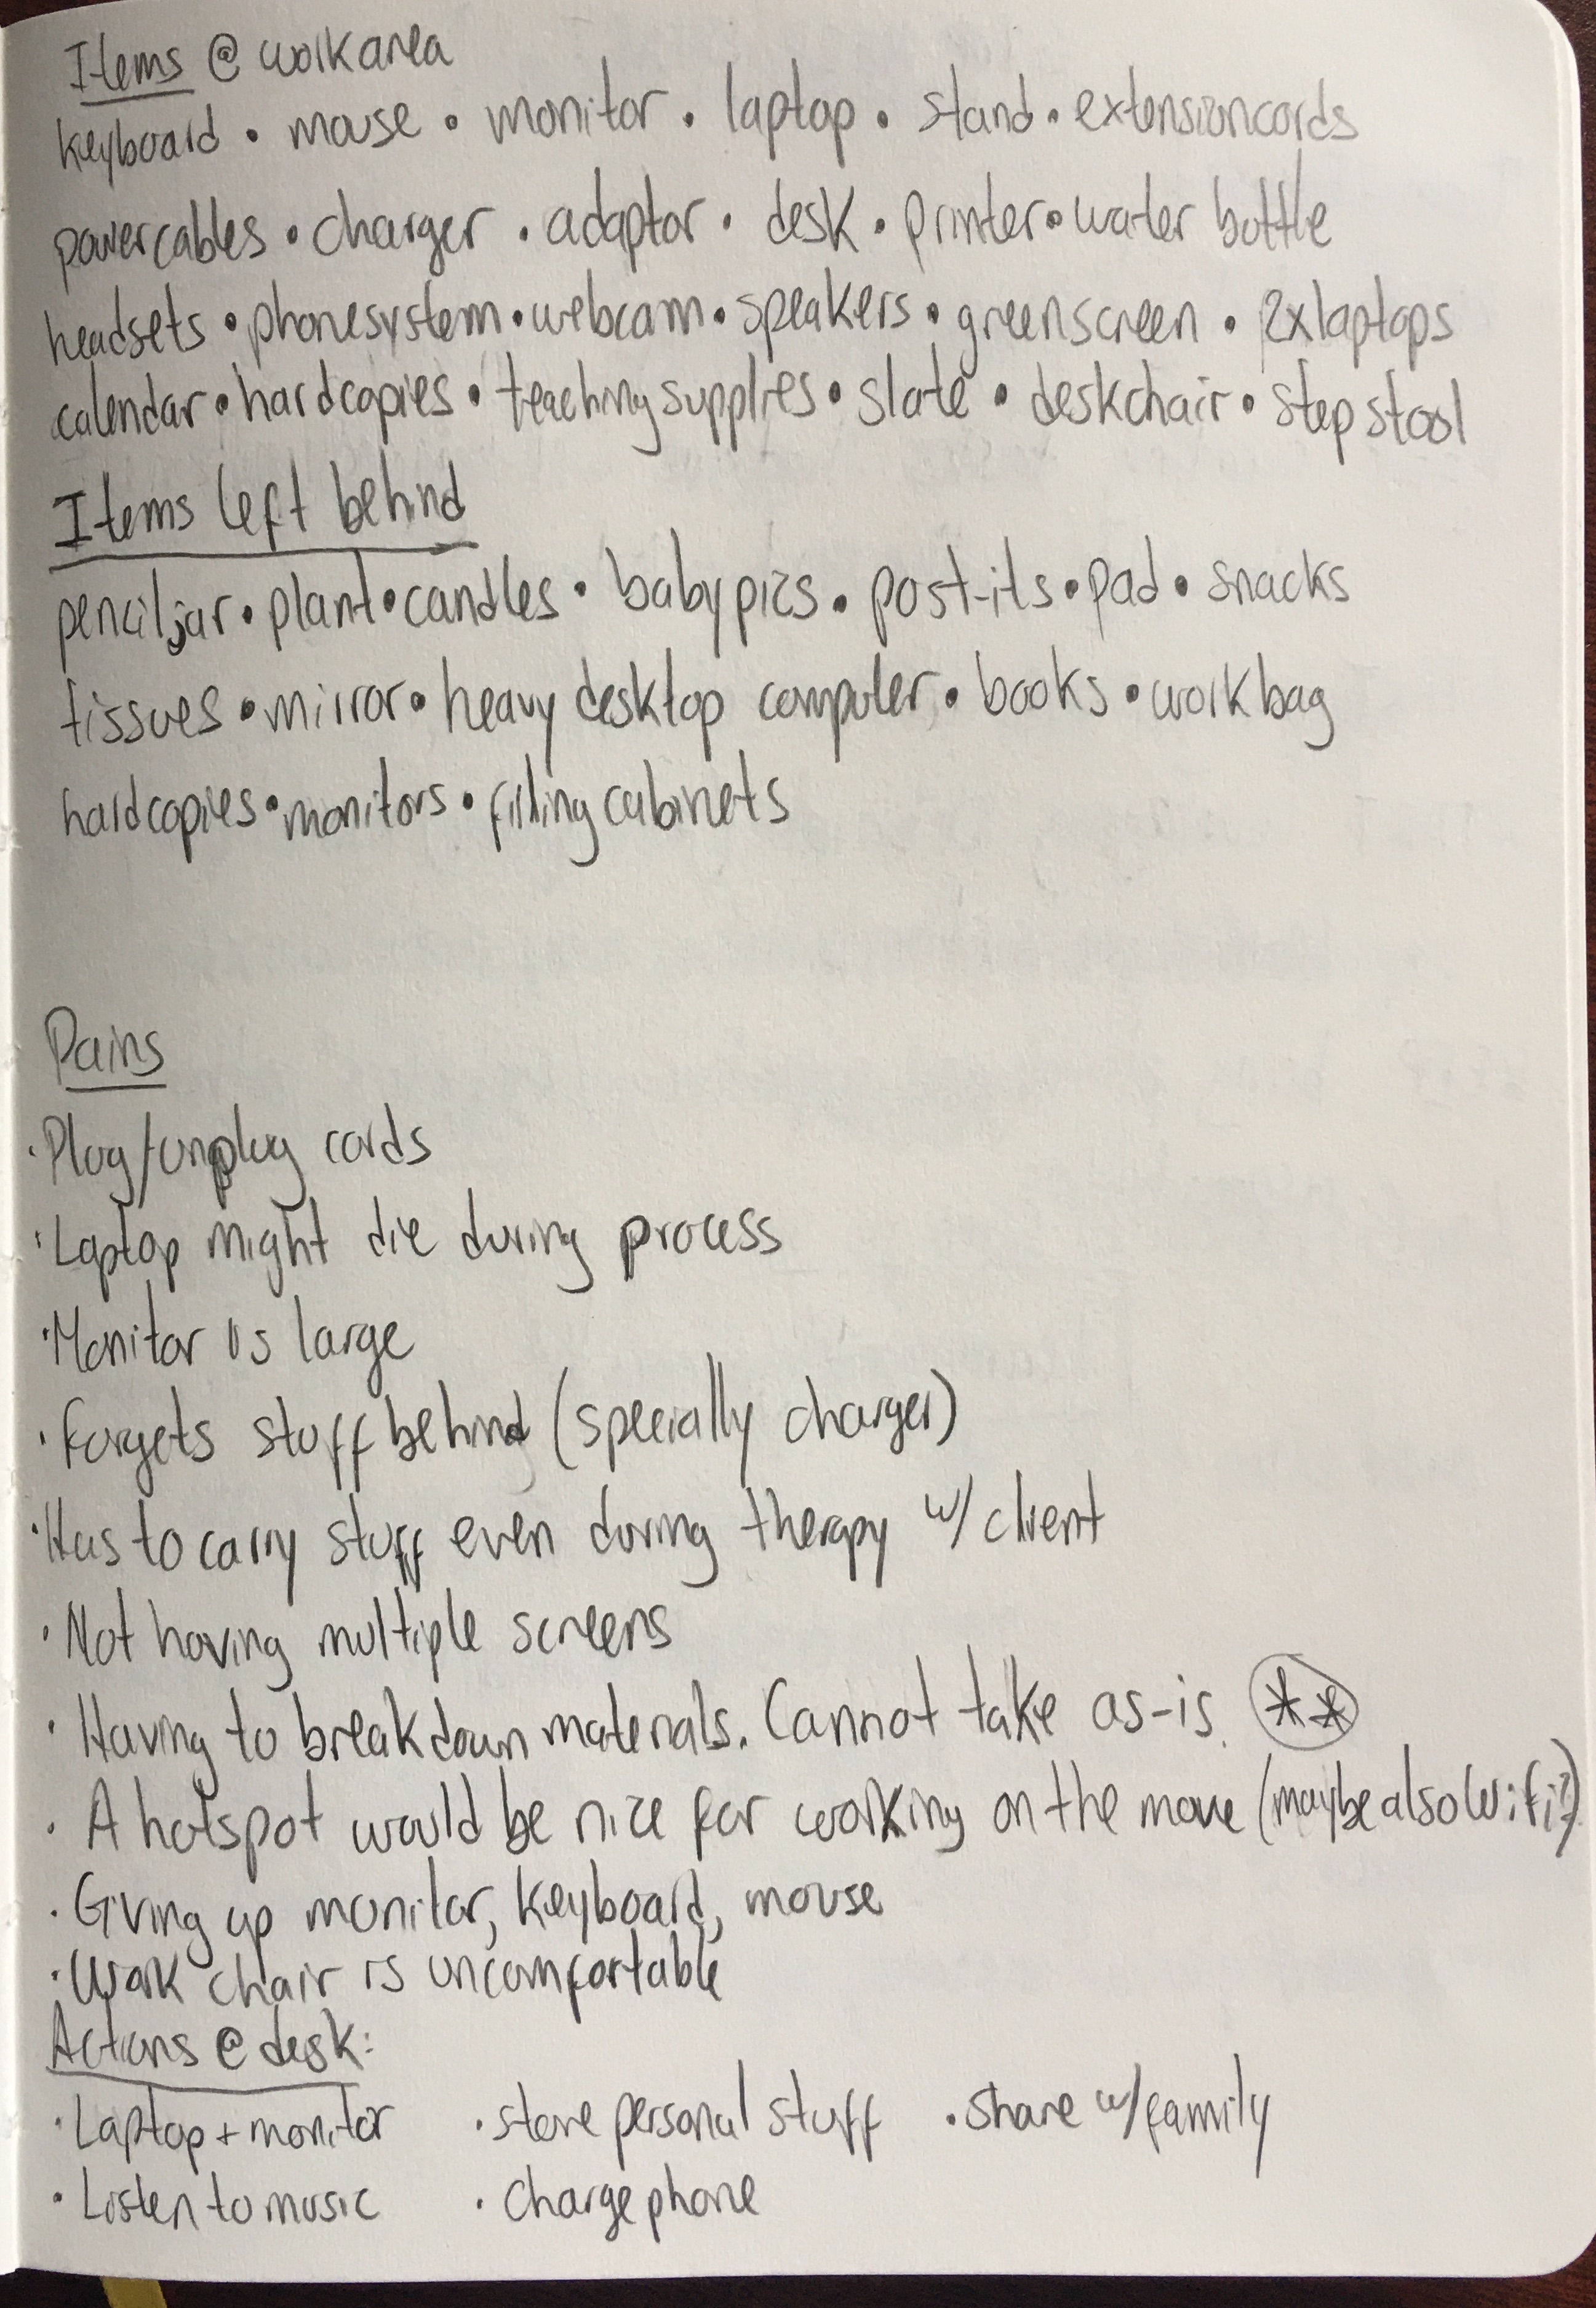 Items @ workarea
keyboard • mouse • monitor • laptop • stand • extensioncords
powercables • charger • adaptor • desk • printer • water bottle
headsets • phonesystem • webcam • speakers • greenscreen • 2xlaptops
calendar • hardcopies • teachingsupplies • slate • deskchair • step stool
Items left behind
penciljar • plant • candles • baby pics • post-its • pad • snacks
tissues • mirror • heavy desktop computer • books • workbag
hardcopies • monitors • filling cabinets
Pains
• Plug/unplug cords
• Laptop might die during process
• Monitor is large
• Forgets stuff behind (specially charger)
• Has to carry stuff even during therapy w/ client
• Not having multiple screens
• Having to breakdown materials. Cannot take as-is. **
• A hotspot would be nice for working on the move (maybe also Wifi?)
• Giving up monitor, keyboard, mouse
• Work chair is uncomfortable
Actions @ desk:
• Laptop + monitor • store personal stuff • share w/ family
• Listen to music • Charge phone